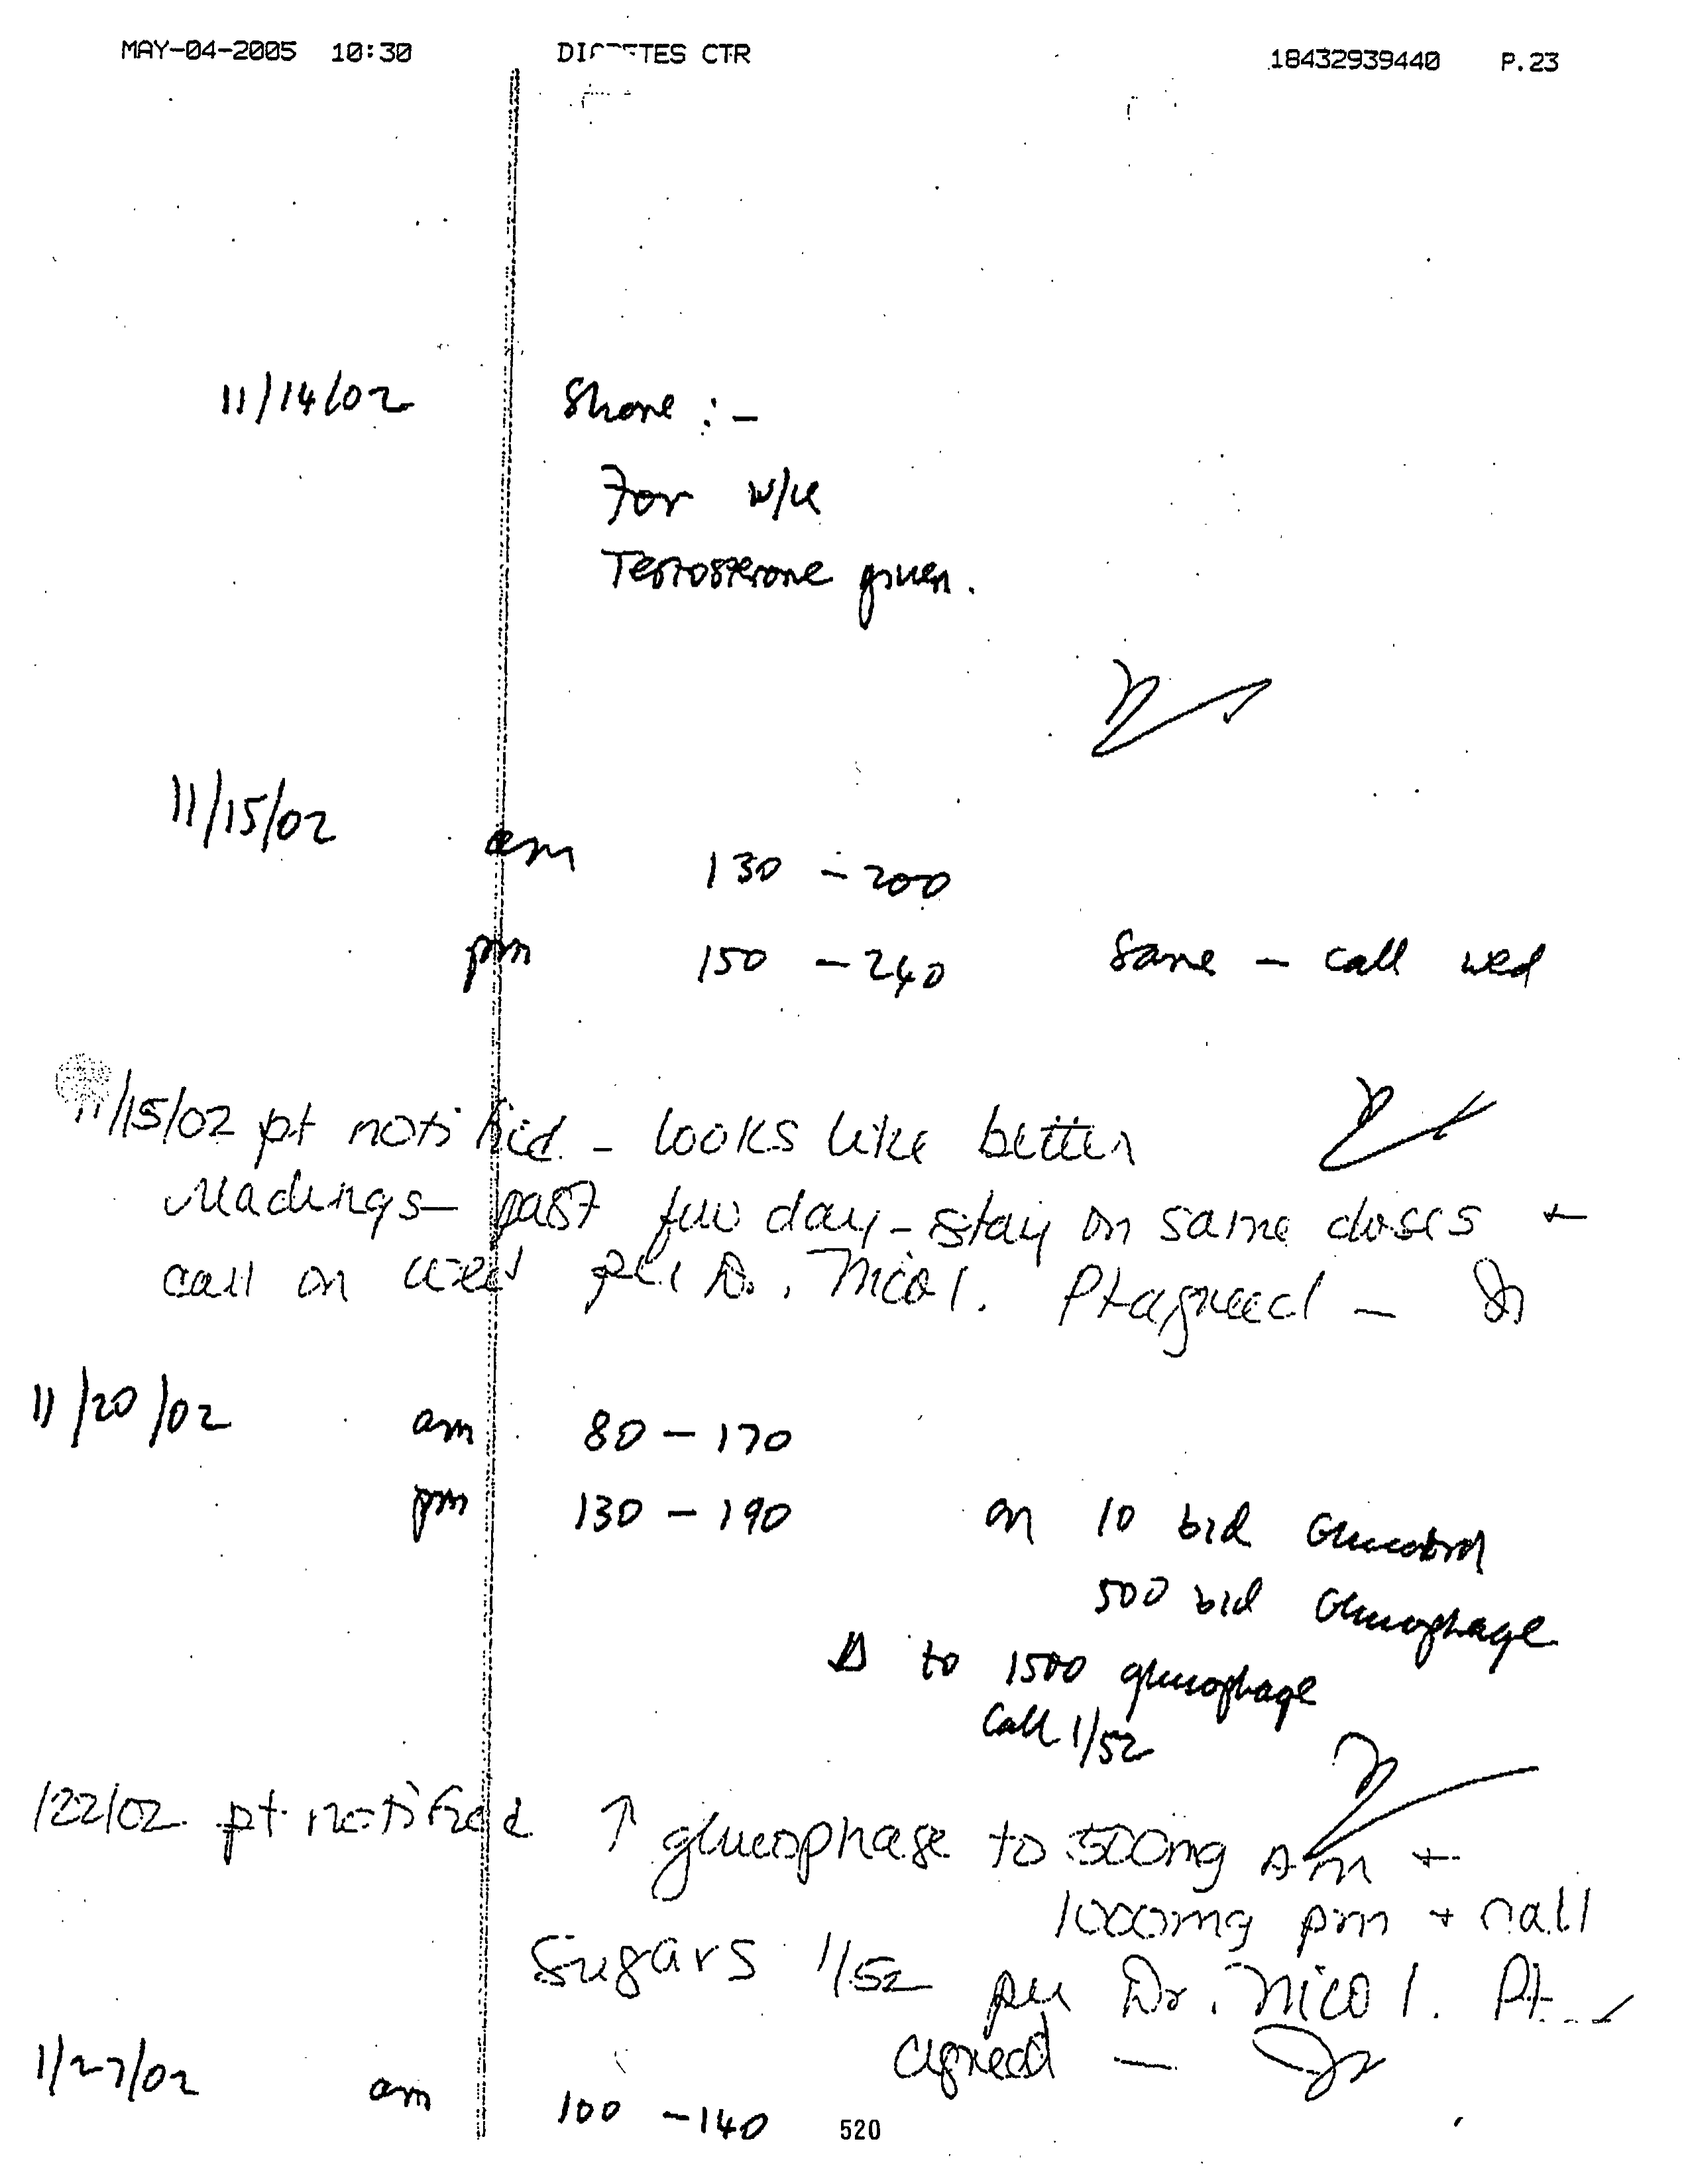 MAY-04-2005 10:30 DIABETES CTR 18432939440 P.23
11/14/02 Shone :-
For W/U
Testosterone given.
11/15/02 am 130 - 200
pm 150 - 240 Same - call wed
11/15/02 pt notified - looks like better
readings past few day - stay on same doses +
call on wed per Dr. Nicol. Pt agreed -
11/20/02 am 80 - 170
pm 130 - 190 on 10 bid Glucotrol
500 bid Glucophage
Δ to 1500 glucophage
Call 1/52
/22/02 pt notified ↑ glucophage to 500mg Am +
1000mg pm + call
Sugars 1/52 per Dr. Nicol. Pt
agreed -
1/27/02 am 100 - 140
520